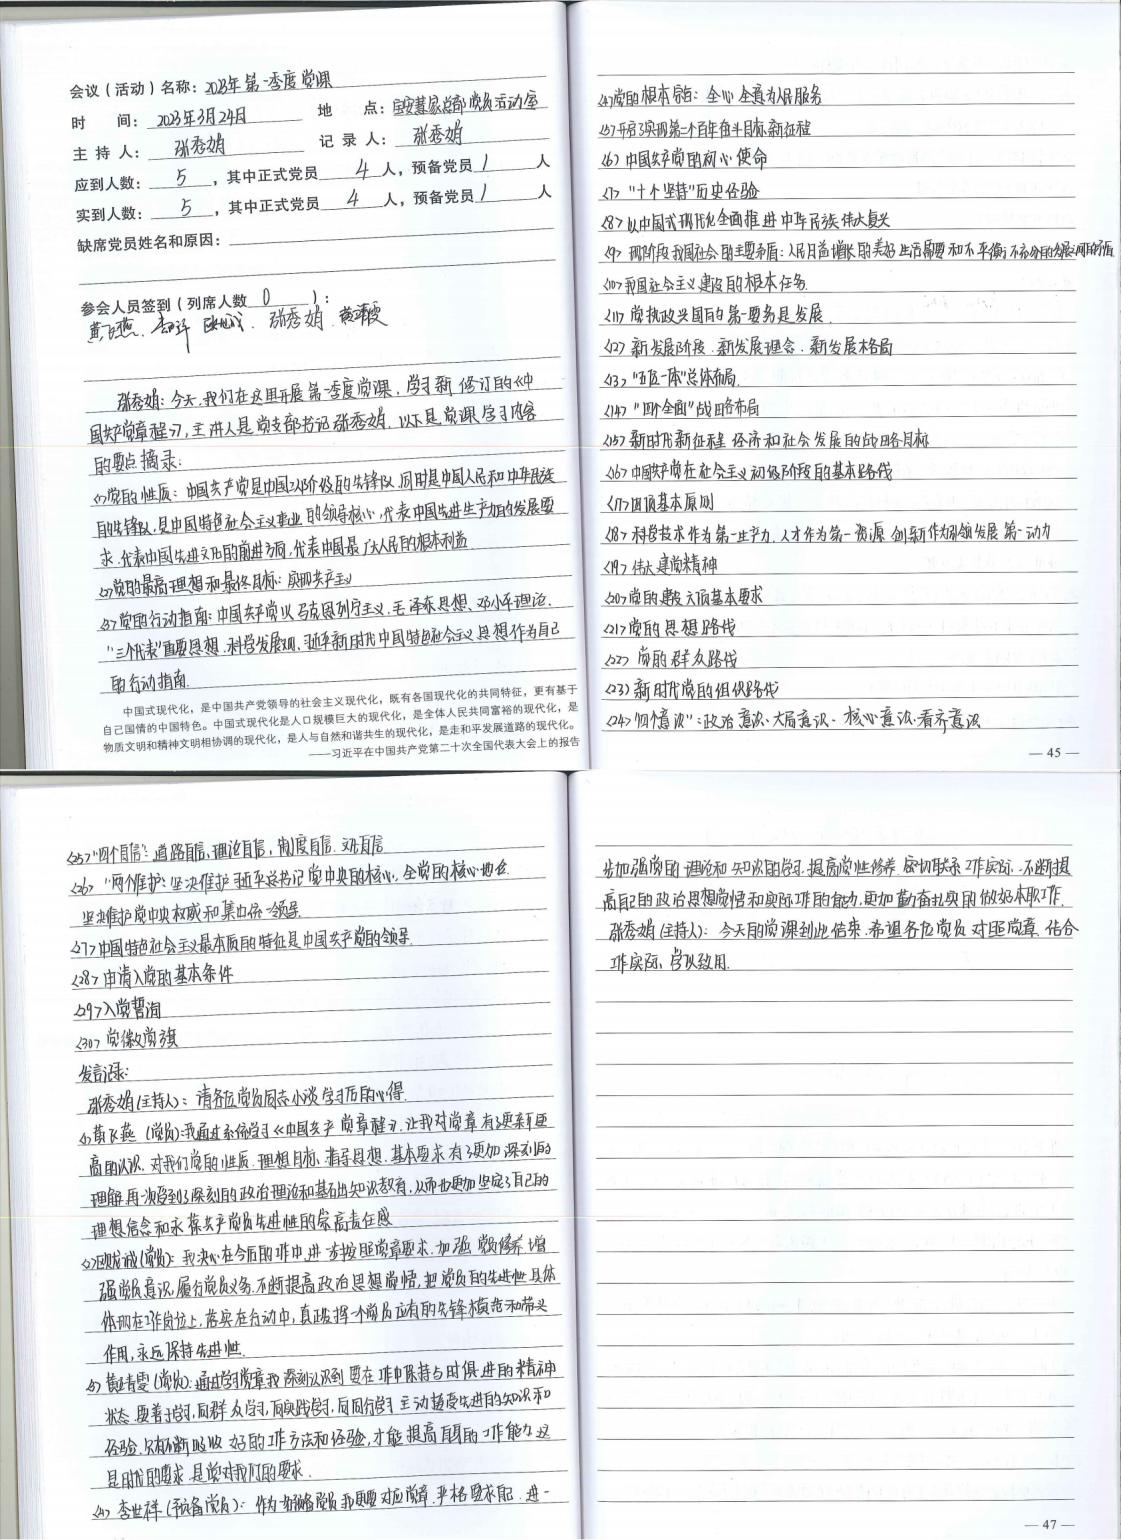 会议（活动）名称：2023年第一季度党课
时 间：2023年3月24日 地 点：宝安慧家总部党员活动室
主 持 人：张秀娟 记 录 人：张秀娟
应到人数：5，其中正式党员 4 人，预备党员 1 人
实到人数：5，其中正式党员 4 人，预备党员 1 人
缺席党员姓名和原因：
参会人员签到（列席人数 0 ）：
张秀娟
张秀娟：今天，我们在这里开展第一季度党课，学习新修订的《中
国共产党章程》，主讲人是党支部书记张秀娟，以下是党课学习内容
的要点摘录：
<1>党的性质：中国共产党是中国工人阶级的先锋队，同时是中国人民和中华民族
的先锋队，是中国特色社会主义事业的领导核心，代表中国先进生产力的发展要
求，代表中国先进文化的前进方向，代表中国最广大人民的根本利益
<2>党的最高理想和最终目标：实现共产主义
<3>党的行动指南：中国共产党以马克思列宁主义、毛泽东思想、邓小平理论、
“三个代表”重要思想、科学发展观、习近平新时代中国特色社会主义思想作为自己
的行动指南.
中国式现代化，是中国共产党领导的社会主义现代化，既有各国现代化的共同特征，更有基于
自己国情的中国特色。中国式现代化是人口规模巨大的现代化，是全体人民共同富裕的现代化，是
物质文明和精神文明相协调的现代化，是人与自然和谐共生的现代化，是走和平发展道路的现代化。
——习近平在中国共产党第二十次全国代表大会上的报告
<4>党的根本宗旨：全心全意为人民服务
<5>开启了实现第二个百年奋斗目标新征程
<6>中国共产党的初心使命
<7>“十个坚持”历史经验
<8>以中国式现代化全面推进中华民族伟大复兴
<9>现阶段我国社会的主要矛盾：人民日益增长的美好生活需要和不平衡不充分的发展之间的矛盾
<10>我国社会主义建设的根本任务
<11>党执政兴国的第一要务是发展
<12>新发展阶段、新发展理念、新发展格局
<13>“五位一体”总体布局
<14>“四个全面”战略布局
<15>新时代新征程经济和社会发展的战略目标
<16>中国共产党在社会主义初级阶段的基本路线
<17>四项基本原则
<18>科学技术作为第一生产力、人才作为第一资源、创新作为引领发展第一动力
<19>伟大建党精神
<20>党的建设六项基本要求
<21>党的思想路线
<22>党的群众路线
<23>新时代党的组织路线
<24>“四个意识”：政治意识、大局意识、核心意识、看齐意识
— 45 —
<25>“四个自信”：道路自信、理论自信、制度自信、文化自信
<26>“两个维护”：坚决维护习近平总书记党中央的核心、全党的核心地位
坚决维护党中央权威和集中统一领导
<27>中国特色社会主义最本质的特征是中国共产党的领导
<28>申请入党的基本条件
<29>入党誓词
<30>党徽党旗
发言记录：
张秀娟(主持人)：请各位党员同志小谈学习后的心得.
<1>黄飞燕（党员）：我通过系统学习《中国共产党章程》，让我对党章有了更新更
高的认识，对我们党的性质、理想目标、指导思想、基本要求有了更加深刻的
理解，再次受到了深刻的政治理论和基础知识教育，从而也更加坚定了自己的
理想信念和永葆共产党员先进性的崇高责任感
<2>(党员)：我决心在今后的工作中，进一步按照党章要求，加强党员修养，增
强党员意识，履行党员义务，不断提高政治思想觉悟，把党员的先进性具体
体现在工作岗位上，落实在行动中，真正发挥一个党员应有的先锋模范和带头
作用，永远保持先进性.
<3>(党员)：通过学习党章我深刻认识到要在工作中保持与时俱进的精神
状态，要善于学习，向群众学习，向实践学习，向同行学习，主动接受先进的知识和
经验，只有不断吸收好的工作方法和经验，才能提高自身的工作能力，这
是时代的要求，是党对我们的要求.
<4>李世祥(预备党员)：作为预备党员我更要对应党章，严格要求自己，进一
步加强党的理论和知识的学习，提高党性修养，密切联系工作实际，不断提
高自己的政治思想觉悟和实际工作的能力，更加勤奋扎实的做好本职工作.
张秀娟(主持人)：今天的党课到此结束，希望各位党员对照党章，结合
工作实际，学以致用.
— 47 —